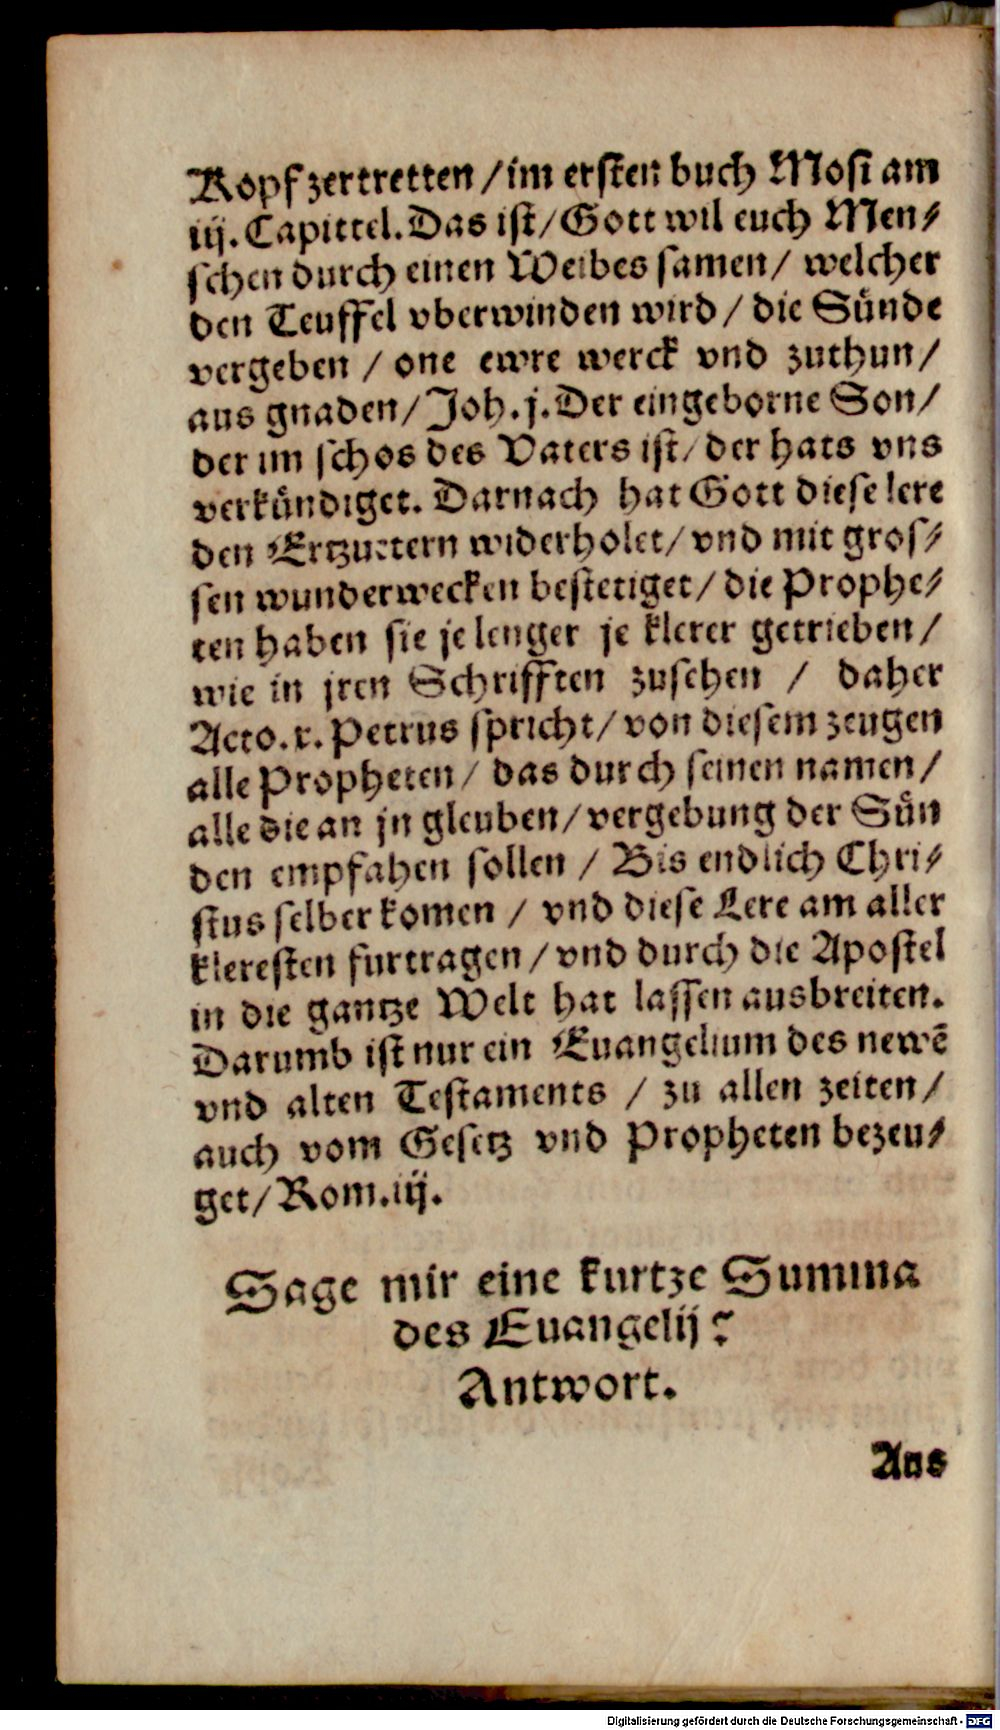 Kopf zertretten / im ersten buch Mosi am
iij. Capittel. Das ist / Gott wil euch Men⸗
schen durch einen Weibes samen / welcher
den Teuffel vberwinden wird / die Sünde
vergeben / one ewre werck vnd zuthun /
aus gnaden / Joh. j. Der eingeborne Son /
der im schos des Vaters ist / der hats vns
verkündiget. Darnach hat Gott diese lere
den Ertzuetern widerholet / vnd mit gros⸗
sen wunderwecken bestetiget / die Prophe⸗
ten haben sie je lenger je klerer getrieben /
wie in jren Schrifften zusehen / daher
Acto. x. Petrus spricht / von diesem zeugen
alle Propheten / das durch seinen namen /
alle die an jn gleuben / vergebung der Sün
den empfahen sollen / Bis endlich Chri⸗
stus selber komen / vnd diese Lere am aller
kleresten furtragen / vnd durch die Apostel
in die gantze Welt hat lassen ausbreiten.
Darumb ist nur ein Euangelium des newē
vnd alten Testaments / zu allen zeiten /
auch vom Gesetz vnd Propheten bezeu⸗
get / Rom. iij.
Sage mir eine kurtze Summa
des Euangelij?
Antwort.
Aus
Digitalisierung gefördert durch die Deutsche Forschungsgemeinschaft - DFG